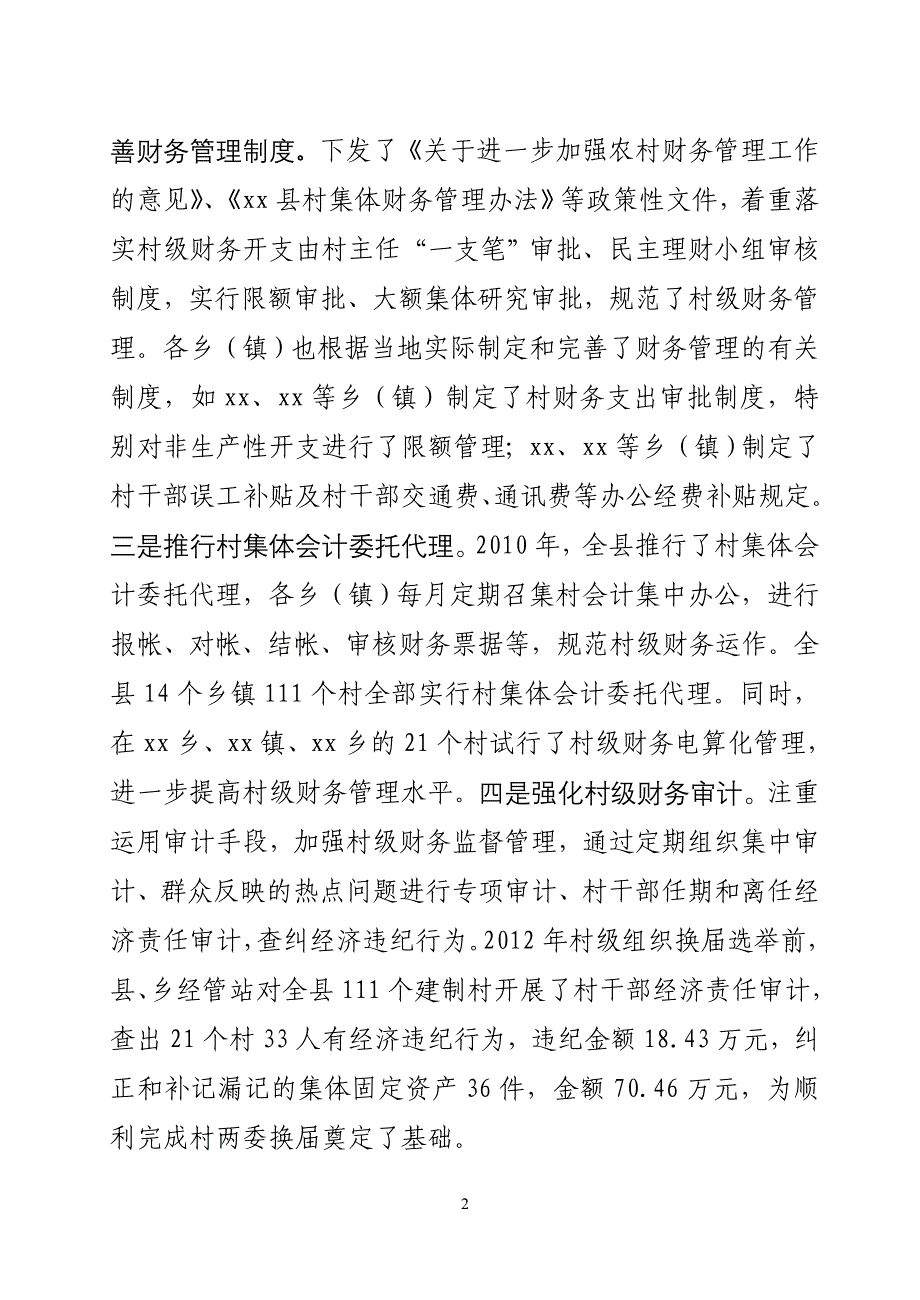 善财务管理制度。下发了《关于进一步加强农村财务管理工作
的意见》、《xx 县村集体财务管理办法》等政策性文件，着重落
实村级财务开支由村主任“一支笔”审批、民主理财小组审核
制度，实行限额审批、大额集体研究审批，规范了村级财务管
理。各乡（镇）也根据当地实际制定和完善了财务管理的有关
制度，如 xx、xx 等乡（镇）制定了村财务支出审批制度，特
别对非生产性开支进行了限额管理；xx、xx 等乡（镇）制定了
村干部误工补贴及村干部交通费、通讯费等办公经费补贴规定。
三是推行村集体会计委托代理。2010 年，全县推行了村集体会
计委托代理，各乡（镇）每月定期召集村会计集中办公，进行
报帐、对帐、结帐、审核财务票据等，规范村级财务运作。全
县 14 个乡镇 111 个村全部实行村集体会计委托代理。同时，
在 xx 乡、xx 镇、xx 乡的 21 个村试行了村级财务电算化管理，
进一步提高村级财务管理水平。四是强化村级财务审计。注重
运用审计手段，加强村级财务监督管理，通过定期组织集中审
计、群众反映的热点问题进行专项审计、村干部任期和离任经
济责任审计，查纠经济违纪行为。2012 年村级组织换届选举前，
县、乡经管站对全县 111 个建制村开展了村干部经济责任审计，
查出 21 个村 33 人有经济违纪行为，违纪金额 18.43 万元，纠
正和补记漏记的集体固定资产 36 件，金额 70.46 万元，为顺
利完成村两委换届奠定了基础。
2